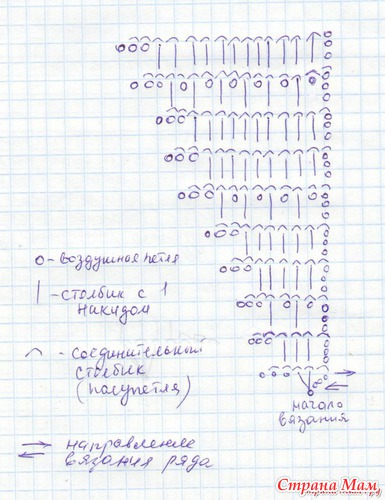 о - воздушная петля
| - столбик с 1
накидом
⌒ - соединительный
столбик
(полупетля)
начало
вязания
направление
вязания ряда
Страна Мам